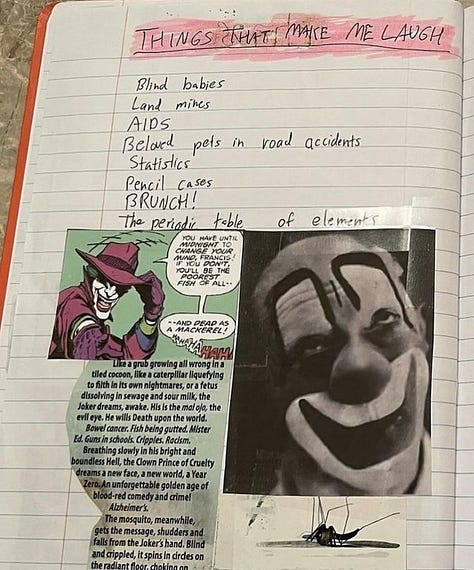 THINGS THAT MAKE ME LAUGH
Blind babies
Land mines
AIDS
Beloved pets in road accidents
Statistics
Pencil cases
BRUNCH!
The periodic table of elements
YOU HAVE UNTIL
MIDNIGHT TO
CHANGE YOUR
MIND, FRANCIS!
IF YOU DON'T,
YOU'LL BE THE
POOREST
FISH OF ALL--
--AND DEAD AS
A MACKEREL!
HAHAHAHAHAH
Like a grub growing all wrong in a
tiled cocoon, like a caterpillar liquefying
to filth in its own nightmares, or a fetus
dissolving in sewage and sour milk, the
Joker dreams, awake. His is the mal ojo, the
evil eye. He wills Death upon the world.
Bowel cancer. Fish being gutted. Mister
Ed. Guns in schools. Cripples. Racism.
Breathing slowly in his bright and
boundless Hell, the Clown Prince of Cruelty
dreams a new face, a new world, a Year
Zero. An unforgettable golden age of
blood-red comedy and crime!
Alzheimer's.
The mosquito, meanwhile,
gets the message, shudders and
falls from the Joker's hand. Blind
and crippled, it spins in circles on
the radiant floor, choking on